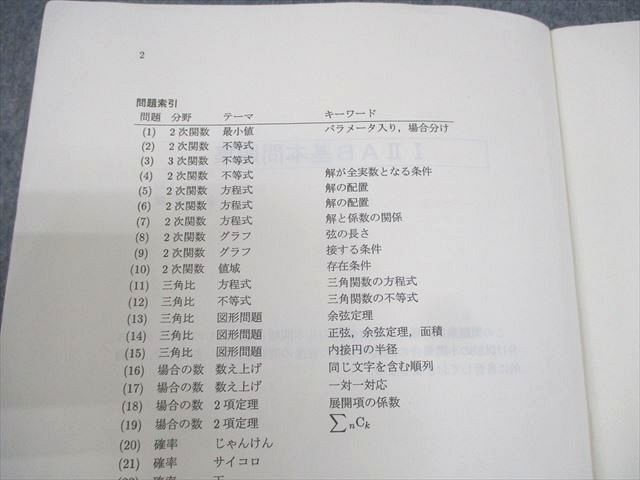 2
問題索引
問題 分野 テーマ キーワード
(1) 2次関数 最小値 パラメータ入り,場合分け
(2) 2次関数 不等式
(3) 3次関数 不等式
(4) 2次関数 不等式 解が全実数となる条件
(5) 2次関数 方程式 解の配置
(6) 2次関数 方程式 解の配置
(7) 2次関数 方程式 解と係数の関係
(8) 2次関数 グラフ 弦の長さ
(9) 2次関数 グラフ 接する条件
(10) 2次関数 値域 存在条件
(11) 三角比 方程式 三角関数の方程式
(12) 三角比 不等式 三角関数の不等式
(13) 三角比 図形問題 余弦定理
(14) 三角比 図形問題 正弦,余弦定理,面積
(15) 三角比 図形問題 内接円の半径
(16) 場合の数 数え上げ 同じ文字を含む順列
(17) 場合の数 数え上げ 一対一対応
(18) 場合の数 2項定理 展開項の係数
(19) 場合の数 2項定理 ∑ₙCₖ
(20) 確率 じゃんけん
(21) 確率 サイコロ